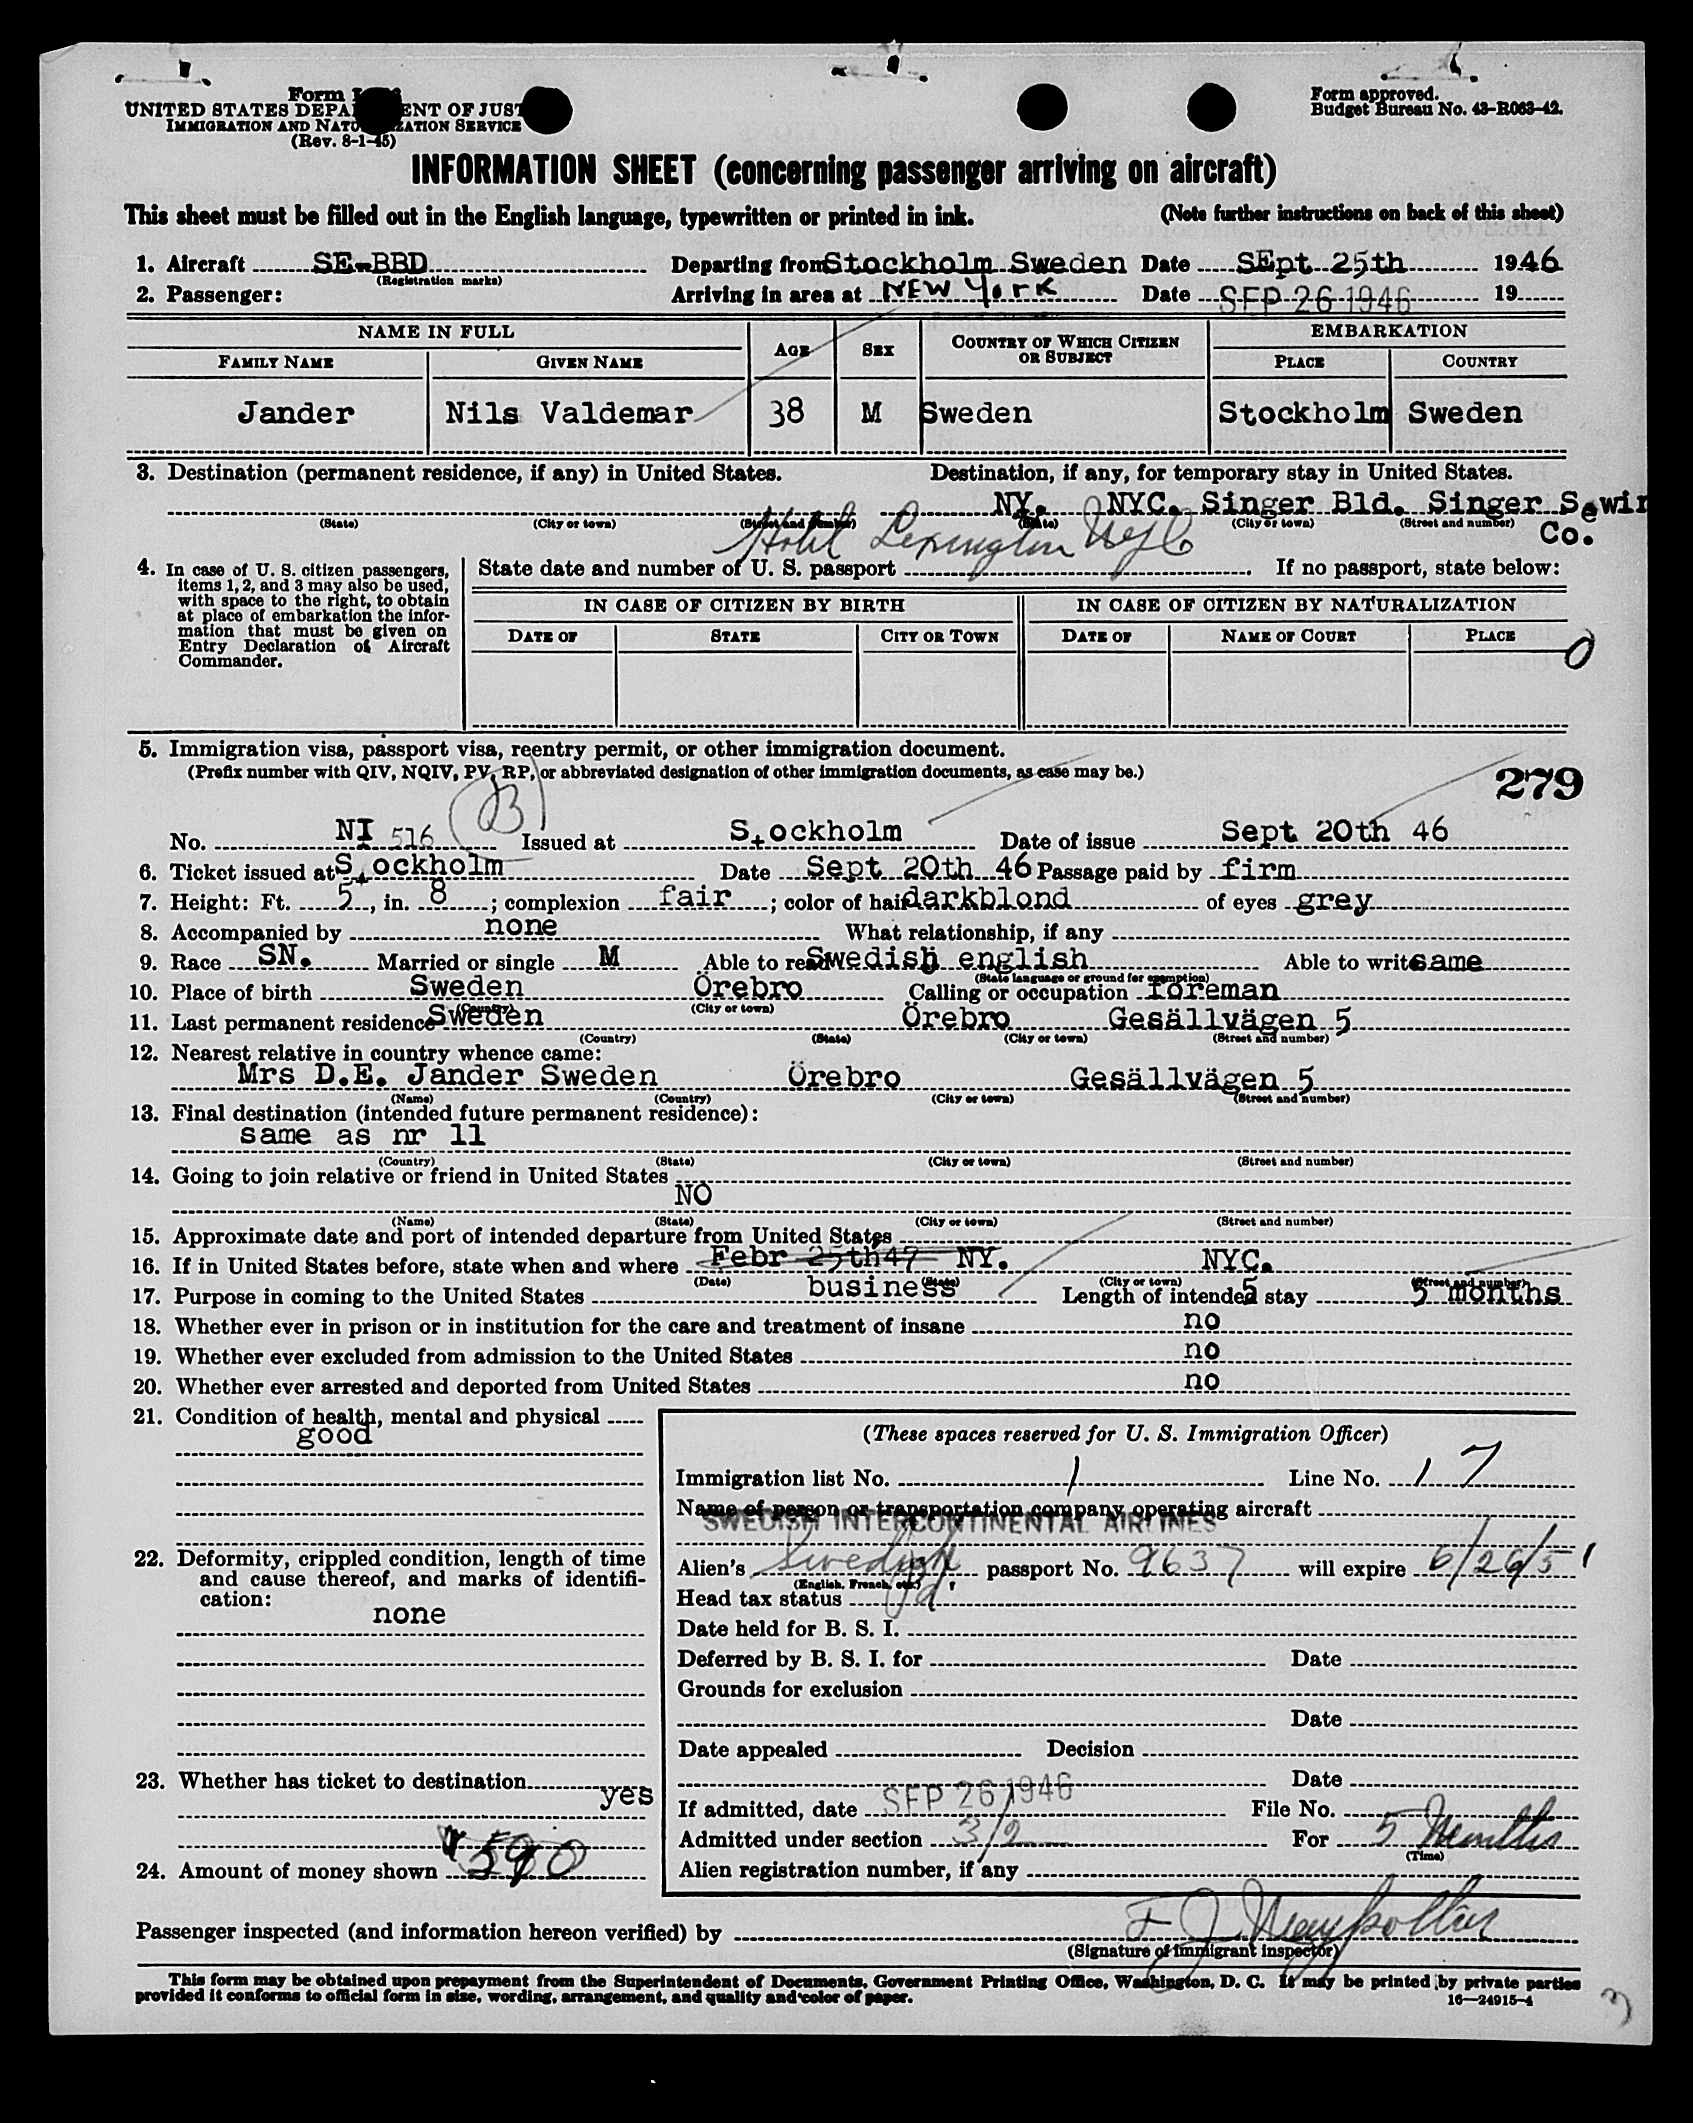 Form
UNITED STATES DEPA ENT OF JUST
IMMIGRATION AND NATU ZATION SERVICE
(Rev. 8-1-45)
Form approved.
Budget Bureau No. 43-R063-42.
INFORMATION SHEET (concerning passenger arriving on aircraft)
This sheet must be filled out in the English language, typewritten or printed in ink. (Note further instructions on back of this sheet)
1. Aircraft SE-BBD Departing from Stockholm Sweden Date SEpt 25th 1946
(Registration marks)
2. Passenger: Arriving in area at NEW YorK Date SEP 26 1946 19
NAME IN FULL AGE SEX COUNTRY OF WHICH CITIZEN OR SUBJECT EMBARKATION
FAMILY NAME GIVEN NAME PLACE COUNTRY
Jander Nils Valdemar 38 M Sweden Stockholm Sweden
3. Destination (permanent residence, if any) in United States. Destination, if any, for temporary stay in United States.
NY. NYC. Singer Bld. Singer Sewin
(State) (City or town) (Street and number) (State) (City or town) (Street and number)
Co.
Hotel Lexington NYC
4. In case of U. S. citizen passengers, items 1, 2, and 3 may also be used, with space to the right, to obtain at place of embarkation the information that must be given on Entry Declaration of Aircraft Commander.
State date and number of U. S. passport If no passport, state below:
IN CASE OF CITIZEN BY BIRTH IN CASE OF CITIZEN BY NATURALIZATION
DATE OF STATE CITY OR TOWN DATE OF NAME OF COURT PLACE
0
5. Immigration visa, passport visa, reentry permit, or other immigration document.
(Prefix number with QIV, NQIV, PV, RP, or abbreviated designation of other immigration documents, as case may be.)
279
B
No. NI 516 Issued at Stockholm Date of issue Sept 20th 46
6. Ticket issued at Stockholm Date Sept 20th 46 Passage paid by firm
7. Height: Ft. 5, in. 8; complexion fair; color of hair darkblond of eyes grey
8. Accompanied by none What relationship, if any
9. Race SN. Married or single M Able to read Swedish english Able to write same
(State language or ground for exemption)
10. Place of birth Sweden Örebro Calling or occupation foreman
(Country) (City or town)
11. Last permanent residence Sweden Örebro Gesällvägen 5
(Country) (State) (City or town) (Street and number)
12. Nearest relative in country whence came:
Mrs D.E. Jander Sweden Örebro Gesällvägen 5
(Name) (Country) (City or town) (Street and number)
13. Final destination (intended future permanent residence):
same as nr 11
(Country) (State) (City or town) (Street and number)
14. Going to join relative or friend in United States
NO
(Name) (State) (City or town) (Street and number)
15. Approximate date and port of intended departure from United States
16. If in United States before, state when and where Febr 25th47 NY. NYC.
(Date) (State) (City or town) (Street and number)
17. Purpose in coming to the United States business Length of intended stay 5 months
18. Whether ever in prison or in institution for the care and treatment of insane no
19. Whether ever excluded from admission to the United States no
20. Whether ever arrested and deported from United States no
21. Condition of health, mental and physical
good
22. Deformity, crippled condition, length of time
and cause thereof, and marks of identifi-
cation:
none
23. Whether has ticket to destination
yes
24. Amount of money shown 590
(These spaces reserved for U. S. Immigration Officer)
Immigration list No. 1 Line No. 17
Name of person or transportation company operating aircraft
SWEDISH INTERCONTINENTAL AIRLINES
Alien's Swedish passport No. 9637 will expire 6/26/51
(English, French, etc.)
Head tax status
Date held for B. S. I.
Deferred by B. S. I. for Date
Grounds for exclusion
Date
Date appealed Decision
Date
If admitted, date SEP 26 1946 File No.
Admitted under section 3/2 For 5 Months
(Time)
Alien registration number, if any
Passenger inspected (and information hereon verified) by
(Signature of immigrant inspector)
This form may be obtained upon prepayment from the Superintendent of Documents, Government Printing Office, Washington, D. C. It may be printed by private parties
provided it conforms to official form in size, wording, arrangement, and quality and color of paper.
16—24915-4